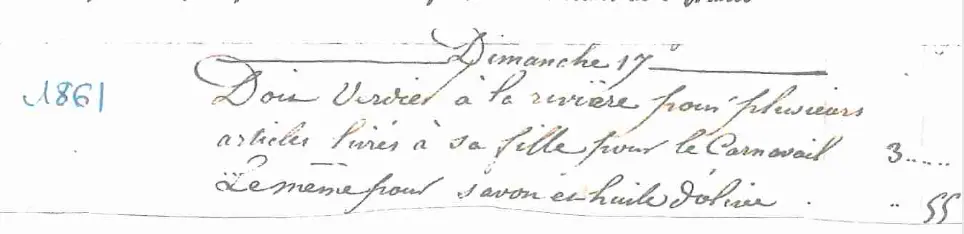 Dimanche 17
1861
Dois Verdier à la rivière pour plusieurs
articles livrés à sa fille pour le Carnavail 3.....
Le même pour savon et huile d'olive . .. 55